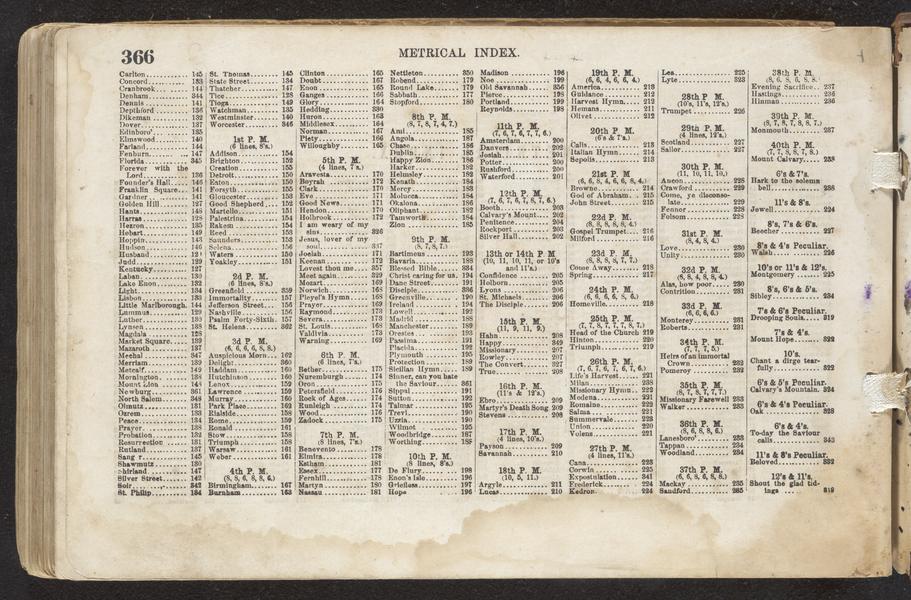 366
METRICAL INDEX.
Carlton 145
Concord 133
Cranbrook 144
Denham 144
Dennis 141
Deptford 136
Dikeman 132
Dover 137
Edinboro' 135
Elmswood 140
Farland 144
Fenbury 147
Florida 345
Forever with the
Lord 136
Founder's Hall 146
Franklin Square 141
Gardner 141
Golden Hill 137
Hants 148
Harras 128
Hezron 135
Hebart 149
Hoppin 143
Hudson 146
Husband
Judd 129
Kentucky 127
Laban 130
Lake Enon 132
Light 134
Lisbon 133
Little Marlborough 144
Lummus 129
Luther 130
Lynden 138
Magdala 128
Market Square 139
Mazaroth 137
Mechal 347
Merriam 139
Metcalf 149
Mornington 138
Mount Zion 148
Newburg 361
North Salem 348
Olmutz 131
Ozrem 133
Peace 134
Prayer 138
Probation 132
Resurrection 131
Rutland 137
Shawmutz 130
Shirland 147
Silver Street 142
Soir 342
St. Philip 134
St. Thomas 145
State Street 134
Thatcher 147
Tice 128
Tioga 149
Watchman 135
Westminster 140
Worcester 346
1st P. M.
(6 lines, 8's)
Addison 154
Brighton 152
Creation 155
Detroit 150
Eaton 150
Forsyth 155
Gloucester 153
Good Shepherd 152
Martello 151
Palestrina 154
Rakem 154
Reed 153
Saunders 153
Selena 156
Waters 150
Yoakley 151
2d P. M.
(6 lines, 8's.)
Greenfield 359
Immortality 157
Jefferson Street 156
Nashville 156
Psalm Forty-Sixth 157
St. Helens 362
3d P. M.
(6, 6, 6, 6, 8, 8.)
Auspicious Morn 162
Delight 360
Haddam 160
Hutchinson 160
Lenox 159
Lawrence 159
Murray 160
Park Place 162
Rialside 158
Rome 159
Ronald 161
Stow 158
Triumph 158
Warsaw 161
Weber 161
4th P. M.
(8, 8, 6, 8, 8, 6.)
Birmingham 167
Burnham 163
Clinton 165
Doubt 167
Enon 165
Ganges 166
Glory 164
Hedding 330
Huron 163
Middlesex 164
Norman 167
Piety 166
Willoughby 165
5th P. M.
(4 lines, 7's.)
Aravesta 170
Boyrah 172
Clark 170
Eve 171
Good News 171
Hendon 170
Holbrook 172
I am weary of my
sins 326
Jesus, lover of my
soul 337
Joseph 171
Keenan 172
Lovest thou me 357
Meet again 329
Mozart 169
Norwich 168
Pleyel's Hymn 168
Prayer 169
Raymond 173
Severn 173
St. Louis 168
Valdivia 173
Warning 169
6th P. M.
(6 lines, 7's.)
Bether 175
Nuremburgh 174
Oron 175
Petersfield 176
Rock of Ages 174
Runleigh 174
Wood 176
Zadock 175
7th P. M.
(8 lines, 7's.)
Benevento 178
Elmira 178
Estham 181
Essex 177
Fernhill 178
Martyn 180
Nassau 181
Nettleton 350
Robend 179
Round Lake 179
Sabbath 177
Stopford 180
8th P. M.
(8, 7, 8, 7, 4, 7.)
Ami 185
Angola 187
Chase 186
Dublin 185
Happy Zion 186
Harker 182
Helmsley 182
Kenath 184
Mercy 183
Molucca 184
Okalona 186
Oliphant 182
Tamworth 184
Zion 185
9th P. M.
(8, 7, 8, 7.)
Bartimeus 193
Bavaria 188
Blessed Bible 334
Christ caring for us 194
Dane Street 191
Disciple 336
Greenville 190
Ireland 194
Lowell 192
Madrid 188
Manchester 189
Orestes 193
Passima 191
Placida 192
Plymouth 195
Protection 189
Sicilian Hymn 189
Sinner, can you hate
the Saviour 361
Siepel 191
Sutton 192
Talmar 195
Trevi 190
Uzzia 190
Wilmot 195
Woodbridge 187
Worthing 188
10th P. M.
(8 lines, 8's.)
De Flury 198
Enon's Isle 196
Griefless 197
Hope 196
Madison 196
Noe 199
Old Savannah 356
Pierce 198
Portland 199
Reynolds 198
11th P. M.
(7, 6, 7, 6, 7, 7, 7, 6.)
Amsterdam 200
Danvers 202
Josiah 201
Potter 200
Rushford 200
Waterford 201
12th P. M.
(7, 6, 7, 6, 7, 8, 7, 6.)
Booth 203
Calvary's Mount 202
Penitence 204
Rockport 203
Silver Hill 202
13th or 14th P M
(10, 11, 10, 11, or 10's
and 11's.)
Confidence 205
Holborn 205
Lyons 206
St. Michaels 206
The Disciple 206
15th P. M.
(11, 9, 11, 9.)
Hahn 208
Happy 349
Missionary 207
Rowley 207
The Convert 327
True 208
16th P. M.
(11's & 12's.)
Ebro 327
Martyr's Death Song 209
Stevens 208
17th P. M.
(4 lines, 10's.)
Payson 209
Savannah 210
18th P. M.
(10, 5, 11.)
Argyle 211
Lucas 210
19th P. M.
(6, 6, 4, 6, 6, 6, 4.)
America 213
Guidance 212
Harvest Hymn 212
Hemans 211
Olivet 212
20th P. M.
(6's & 7's.)
Calis 213
Italian Hymn 214
Sepolis 213
21st P. M.
(6, 6, 8, 4, 6, 6, 8, 4.)
Browne 214
God of Abraham 215
John Street 215
22d P. M.
(8, 8, 8, 8, 8, 4.)
Gospel Trumpet 216
Milford 216
23d P. M.
(8, 8, 8, 8, 7, 7.)
Come Away 218
Springs 217
24th P. M.
(6, 6, 6, 6, 8, 6.)
Homeville 218
25th P. M.
(7, 7, 8, 7, 7, 7, 8, 7.)
Head of the Church 219
Hinton 220
Triumph 219
26th P. M.
(7, 6, 7, 6, 7, 6, 7, 6.)
Life's Harvest 221
Milan 238
Missionary Hymn 222
Modena 221
Romaine 222
Salma 221
Summervale 223
Union 220
Volens 221
27th P. M.
(4 lines, 11's.)
Cana 223
Corwin 225
Expostulation 341
Frederick 224
Kedron 224
Lea 225
Lyte 323
28th P. M.
(10's, 11's, 12's.)
Trumpet 226
29th P. M.
(4 lines, 12's.)
Scotland 227
Sailor 227
30th P. M.
(11, 10, 11, 10.)
Aneon 228
Crawford 229
Come, ye disconso-
late 229
Fenner 228
Folsom 228
31st P. M.
(8, 4, 8, 4.)
Love 230
Unity 230
32d P. M.
(8, 8, 4, 8, 8, 4.)
Alas, how poor 230
Contrition 231
33d P. M.
(6, 6, 6, 6.)
Monterey 231
Roberts 231
34th P. M.
(7, 7, 7, 5.)
Heirs of an immortal
Crown 232
Pomeroy 232
35th P. M.
(8, 7, 8, 7, 7, 7.)
Missionary Farewell 233
Walker 233
36th P. M.
(8, 6, 8, 8, 6.)
Lanesboro' 233
Tappan 234
Woodland 234
37th P. M.
(6, 8, 6, 8, 8, 8.)
Mackay 235
Sandford 235
38th P. M.
(8, 6, 8, 6, 8, 8.)
Evening Sacrifice 237
Hastings 236
Hinman 236
39th P. M.
(8, 7, 8, 7, 8, 8, 7.)
Monmouth 237
40th P. M.
(7, 7, 8, 7, 8, 7.)
Mount Calvary 238
6's & 7's.
Hark to the solemn
bell 238
11's & 8's.
Jewell 224
8's, 7's & 6's.
Beecher 227
8's & 4's Peculiar.
Walsh 226
10's or 11's & 12's.
Montgomery 225
8's, 6's & 5's.
Sibley 234
7's & 6's Peculiar.
Drooping Souls 319
7's & 4's.
Mount Hope 322
10's.
Chant a dirge tear-
fully 322
6's & 5's Peculiar.
Calvary's Mountain 324
6's & 4's Peculiar.
Oak 328
6's & 4's.
To-day the Saviour
calls 343
11's & 8's Peculiar.
Beloved 332
12's & 11's.
Shout the glad tid-
ings 319